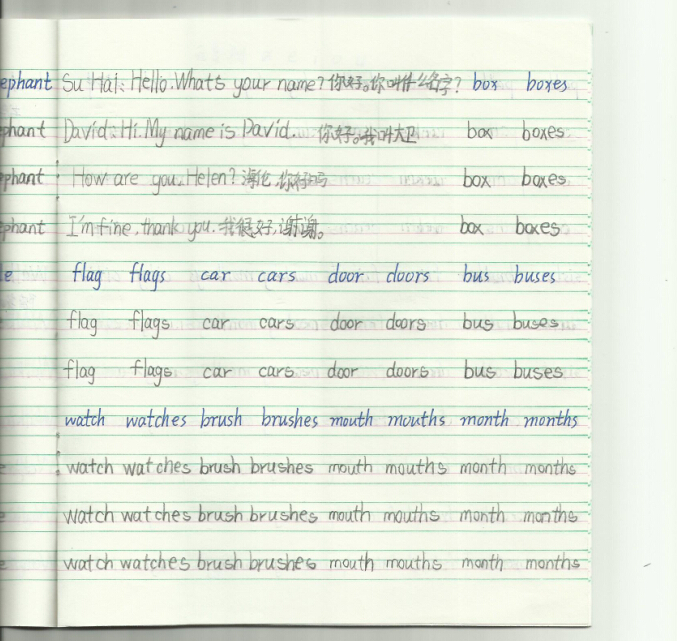 ephant Su Hai: Hello. What's your name? 你好。你叫什么名字? box boxes
phant David: Hi. My name is David. 你好。我叫大卫 box boxes
phant How are you, Helen? 海伦,你好吗 box boxes
phant I'm fine, thank you. 我很好,谢谢。 box boxes
le flag flags car cars door doors bus buses
flag flags car cars door doors bus buses
flag flags car cars door doors bus buses
watch watches brush brushes mouth mouths month months
watch watches brush brushes mouth mouths month months
watch watches brush brushes mouth mouths month months
watch watches brush brushes mouth mouths month months